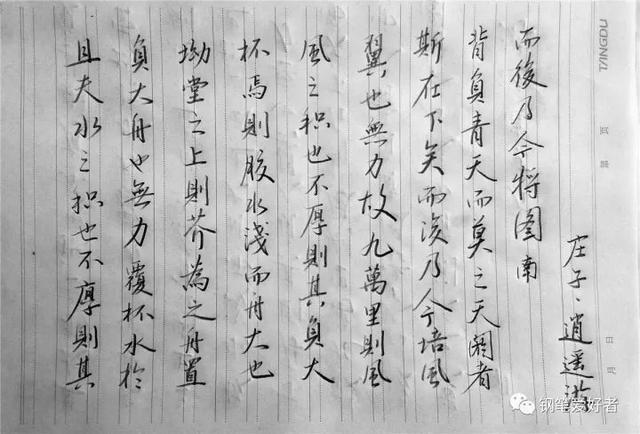 且夫水之积也不厚則其
負大舟也無力覆杯水於
坳堂之上則芥為之舟置
杯焉則胶水淺而舟大也
風之积也不厚則其負大
翼也無力故九萬里則風
斯在下矣而後乃今培風
背負青天而莫之天閼者
而後乃今將图南
庄子·逍遥游
TANGDU
钢笔爱好者